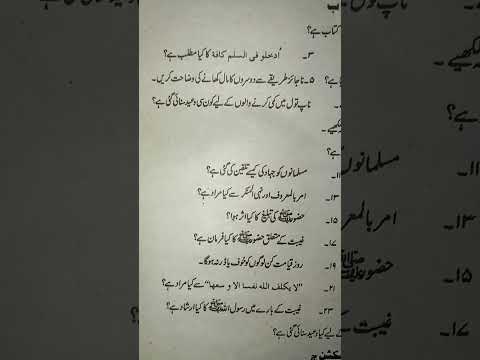 ب
کتاب ہے؟
۳۔ اُدخلو فی السلم کافۃ کا کیا مطلب ہے؟
۵۔ ناجائز طریقے سے دوسروں کا مال کھانے کی وضاحت کریں۔
ناپ تول میں کمی کرنے والوں کے لیے کون سی وعید سنائی گئی ہے؟
ہے؟
۱۱۔ مسلمانوں کو جہاد کی کیسے تلقین کی گئی ہے؟
۱۳۔ امر بالمعروف اور نہی المنکر سے کیا مراد ہے؟
۱۵۔ حضور ﷺ کی تبلیغ کا کیا اثر ہوا؟
۱۷۔ غیبت کے متعلق حضور ﷺ کا کیا فرمان ہے؟
۱۹۔ روز قیامت کن لوگوں کو خوف یا ڈر نہ ہوگا۔
۲۱۔ "لا یکلف اللہ نفسا الا وسعھا" سے کیا مراد ہے؟
۲۳۔ غیبت کے بارے میں رسول اللہ ﷺ کا کیا ارشاد ہے؟
کے لیے کیا وعید سنائی گئی ہے؟